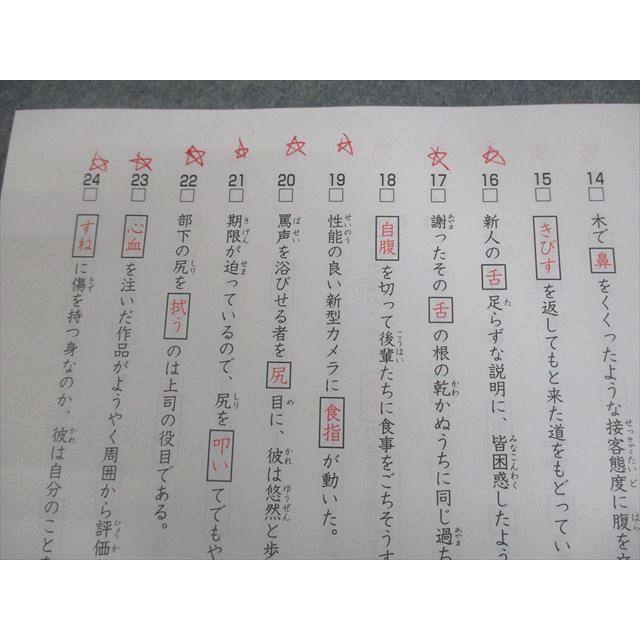 14 □ 木で鼻をくくったような接客態度に腹を
15 □ きびすを返してもと来た道をもどってい
16 □ 新人の舌足らずな説明に、皆困惑したよう
17 □ 謝ったその舌の根の乾かぬうちに同じ過ち
18 □ 自腹を切って後輩たちに食事をごちそうす
19 □ 性能の良い新型カメラに食指が動いた。
20 □ 罵声を浴びせる者を尻目に、彼は悠然と歩
21 □ 期限が迫っているので、尻を叩いてでもや
22 □ 部下の尻を拭うのは上司の役目である。
23 □ 心血を注いだ作品がようやく周囲から評価
24 □ すねに傷を持つ身なのか、彼は自分のことを